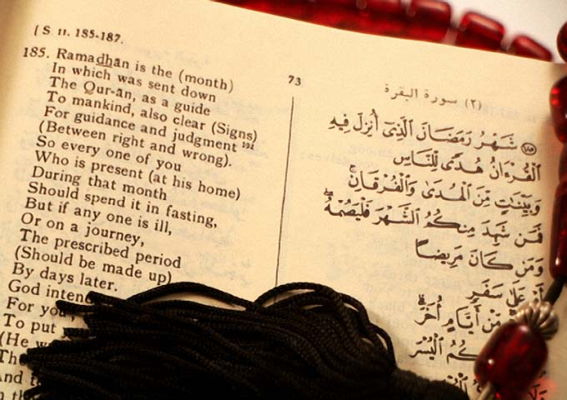 [S. II. 185-187.
73
(٢) سورة البقرة
185. Ramadhān is the (month)
In which was sent down
The Qur-ān, as a guide
To mankind, also clear (Signs)
For guidance and judgment 194
(Between right and wrong).
So every one of you
Who is present (at his home)
During that month
Should spend it in fasting,
But if any one is ill,
Or on a journey,
The prescribed period
(Should be made up)
By days later.
God
For you,
To put
(He
شَهْرُ رَمَضَانَ الَّذِيٓ أُنْزِلَ فِيهِ
الْقُرْءَانُ هُدًى لِلنَّاسِ
وَبَيِّنَٰتٍ مِّنَ الْهُدَىٰ وَالْفُرْقَانِ ۚ
فَمَن شَهِدَ مِنكُمُ الشَّهْرَ فَلْيَصُمْهُ ۖ
وَمَن كَانَ مَرِيضًا
أَوْ عَلَىٰ سَفَرٍ
مِّنْ أَيَّامٍ أُخَرَ ۗ
الْيُسْرَ